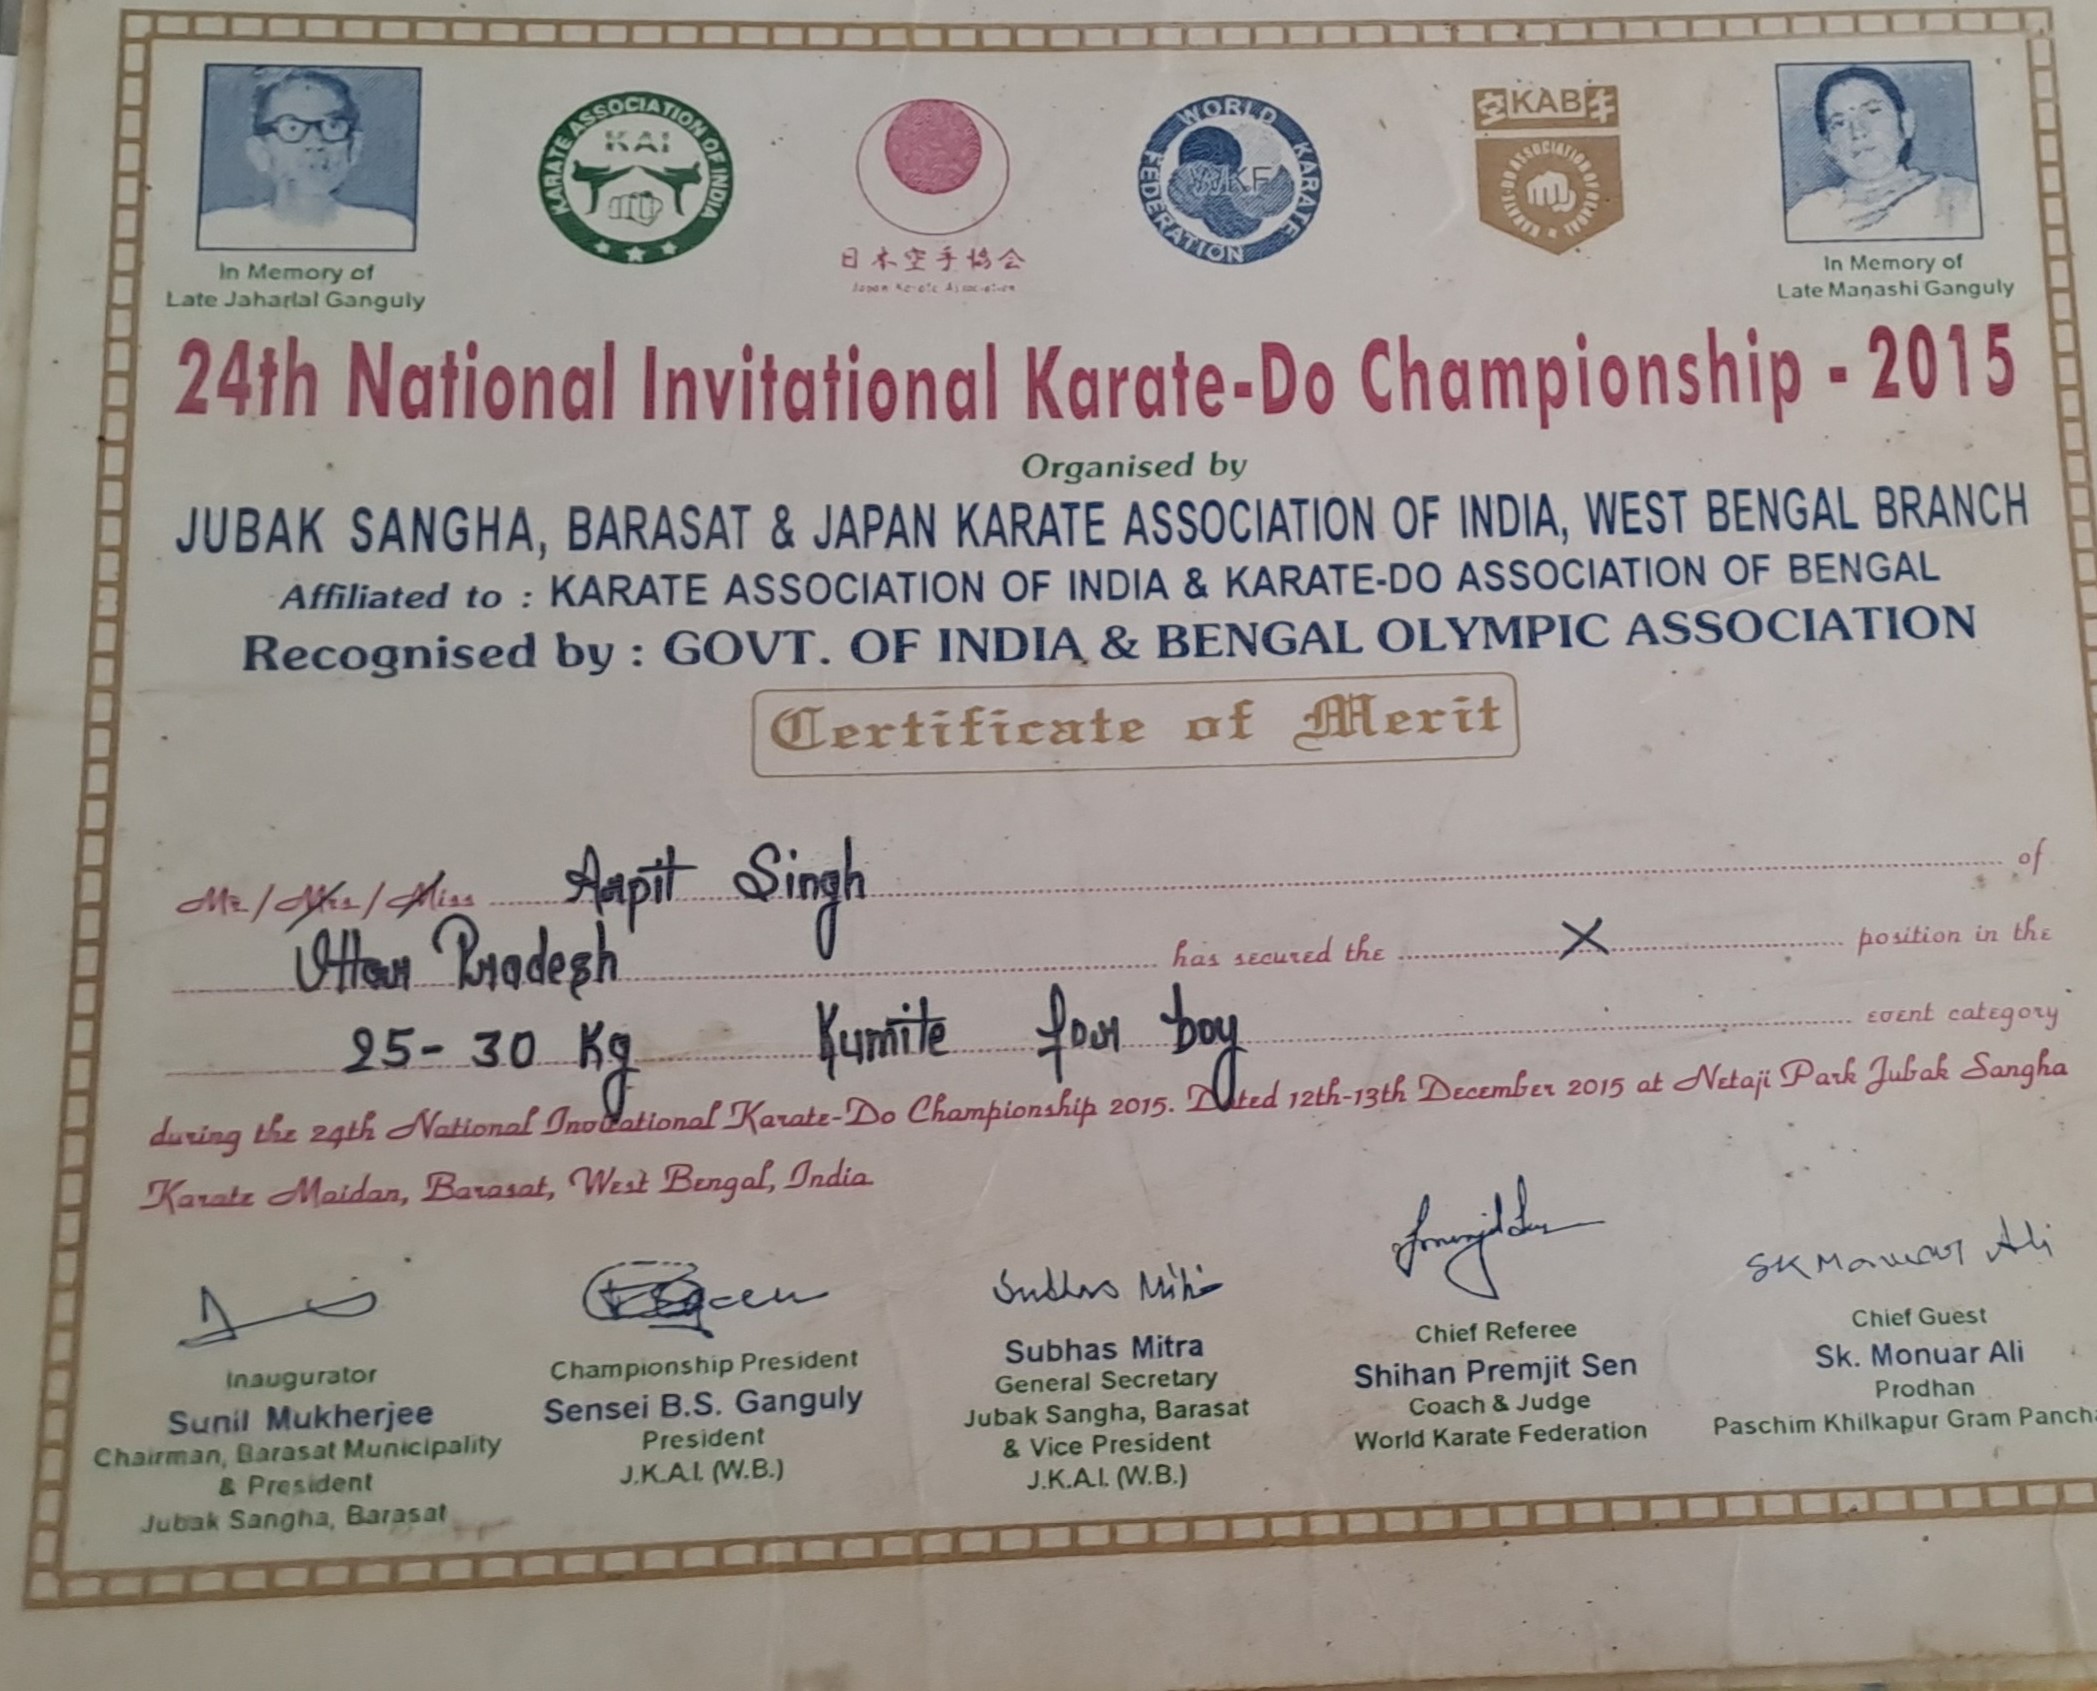 KARATE ASSOCIATION OF INDIA
KAI
日本空手協会
Japan Karate Association
WORLD KARATE FEDERATION
WKF
空 KAB 手
KARATE-DO ASSOCIATION OF BENGAL
In Memory of
Late Jaharlal Ganguly
In Memory of
Late Manashi Ganguly
24th National Invitational Karate-Do Championship - 2015
Organised by
JUBAK SANGHA, BARASAT & JAPAN KARATE ASSOCIATION OF INDIA, WEST BENGAL BRANCH
Affiliated to : KARATE ASSOCIATION OF INDIA & KARATE-DO ASSOCIATION OF BENGAL
Recognised by : GOVT. OF INDIA & BENGAL OLYMPIC ASSOCIATION
Certificate of Merit
Mr/Mrs/Miss Arpit Singh of
Uttar Pradesh has secured the X position in the
25-30 Kg Kumite for boy event category
during the 24th National Invitational Karate-Do Championship 2015. Dated 12th-13th December 2015 at Netaji Park Jubak Sangha
Karate Maidan, Barasat, West Bengal, India
Subhas Mitra
SK Monuar Ali
Inaugurator
Sunil Mukherjee
Chairman, Barasat Municipality
& President
Jubak Sangha, Barasat
Championship President
Sensei B.S. Ganguly
President
J.K.A.I. (W.B.)
Subhas Mitra
General Secretary
Jubak Sangha, Barasat
& Vice President
J.K.A.I. (W.B.)
Chief Referee
Shihan Premjit Sen
Coach & Judge
World Karate Federation
Chief Guest
Sk. Monuar Ali
Prodhan
Paschim Khilkapur Gram Pancha